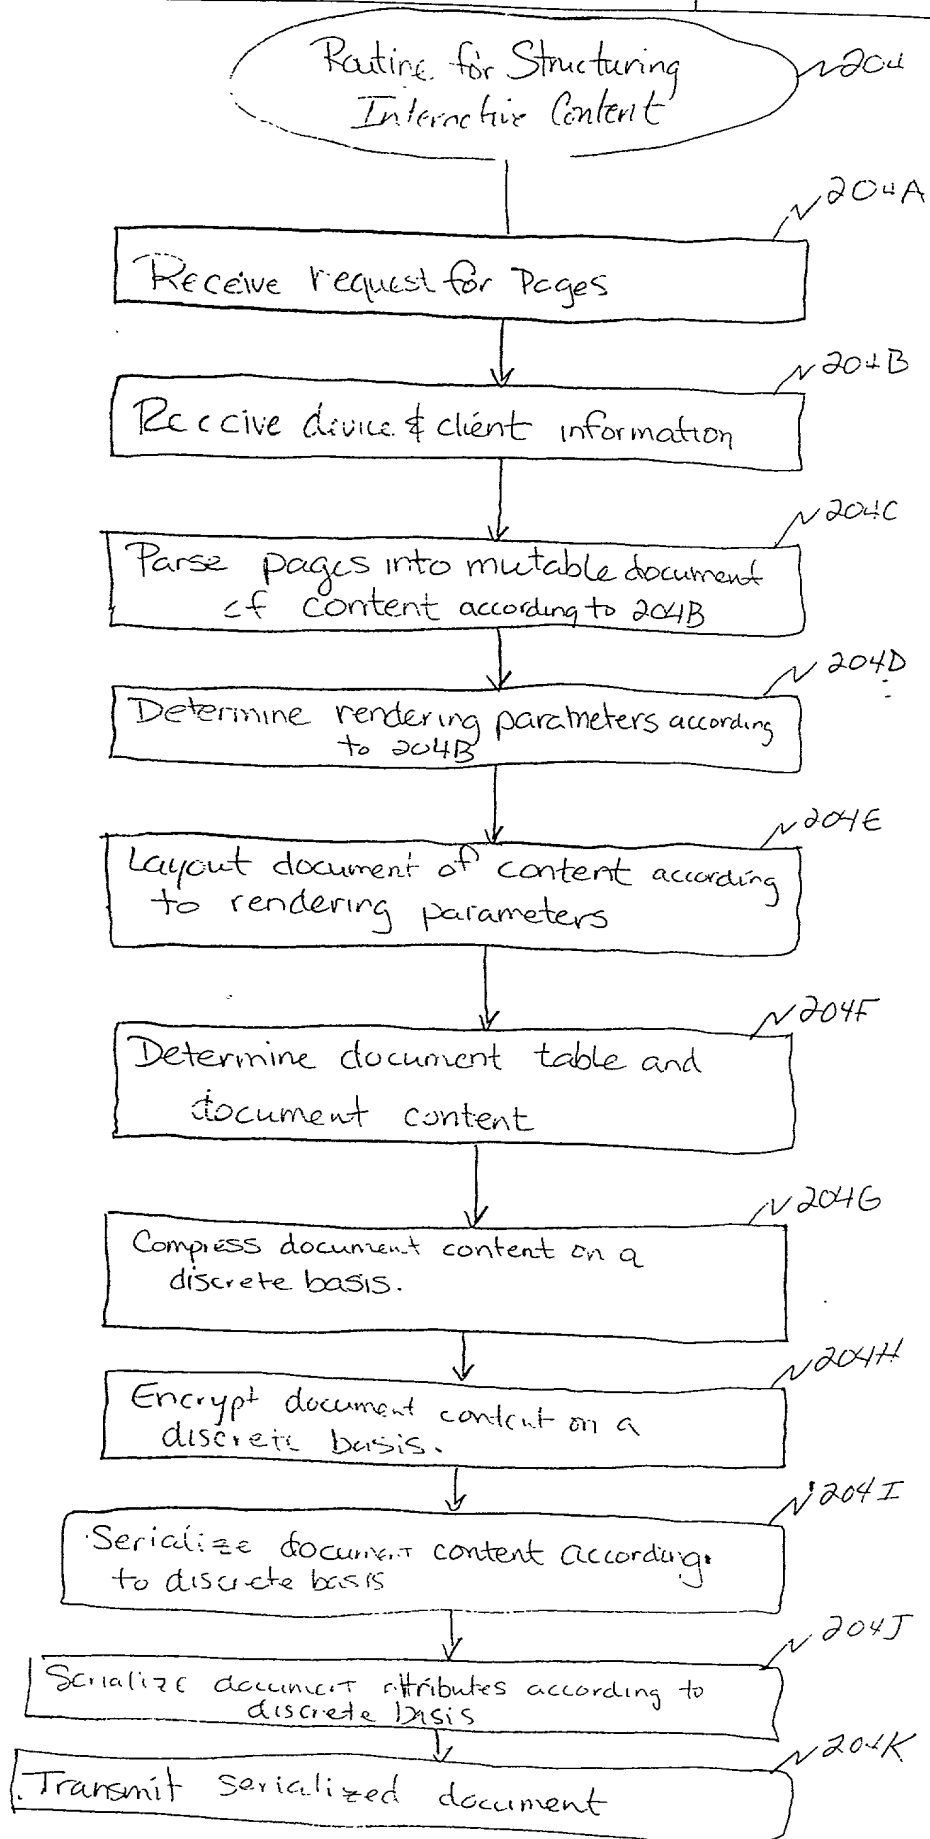 Routine for Structuring
Interactive Content
204
204A
Receive request for Pages
204B
Receive device & client information
204C
Parse pages into mutable document
of content according to 204B
204D
Determine rendering parameters according
to 204B
204E
Layout document of content according
to rendering parameters
204F
Determine document table and
document content
204G
Compress document content on a
discrete basis.
204H
Encrypt document content on a
discrete basis.
204I
Serialize document content according
to discrete basis
204J
Serialize document attributes according to
discrete basis
204K
Transmit serialized document